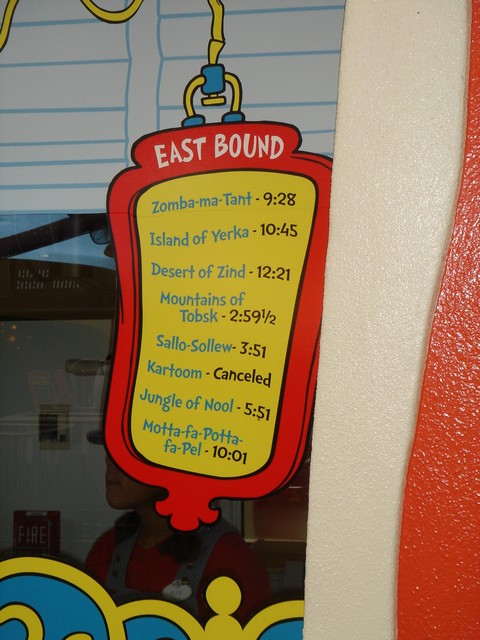 EAST BOUND
Zomba-ma-Tant - 9:28
Island of Yerka - 10:45
Desert of Zind - 12:21
Mountains of
Tobsk - 2:59½
Sallo-Sollew- 3:51
Kartoom - Canceled
Jungle of Nool - 5:51
Motta-fa-Potta-
fa-Pel - 10:01
FIRE